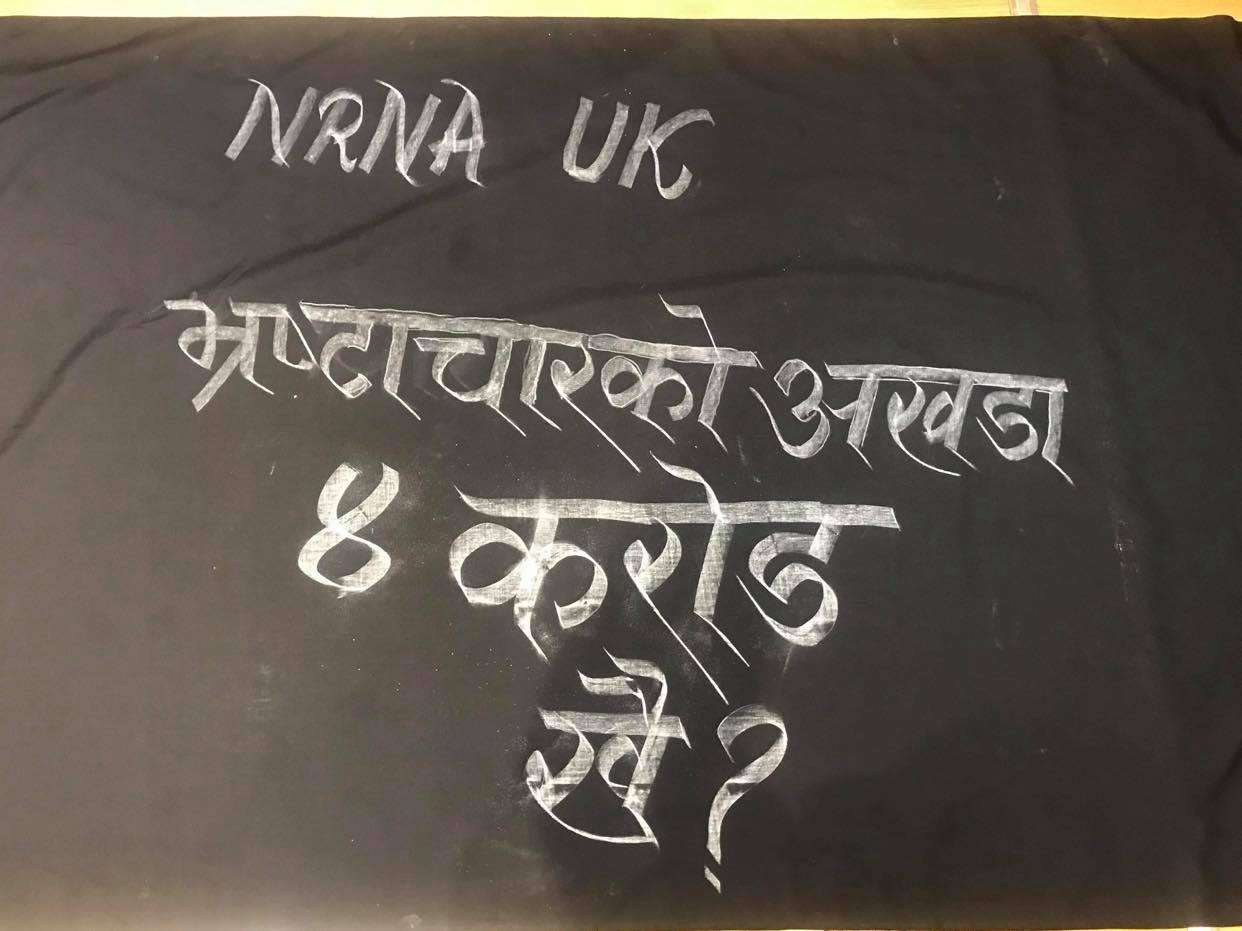 NRNA UK
भ्रष्टाचारको अखडा
४ करोड
खै ?